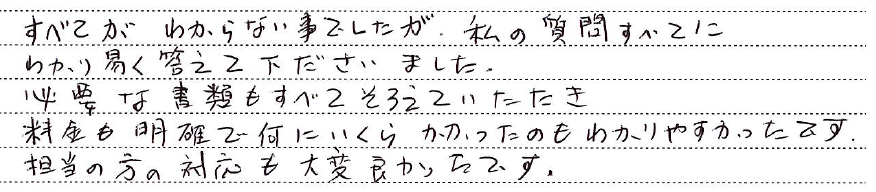 すべてが わからない事でしたが、私の質問すべてに
わかり易く答えて下ださいました。
必要な書類もすべてそろえていただき
料金も明確で何にいくらかかったのもわかりやすかったです.
担当の方の対応も大変良かったです。